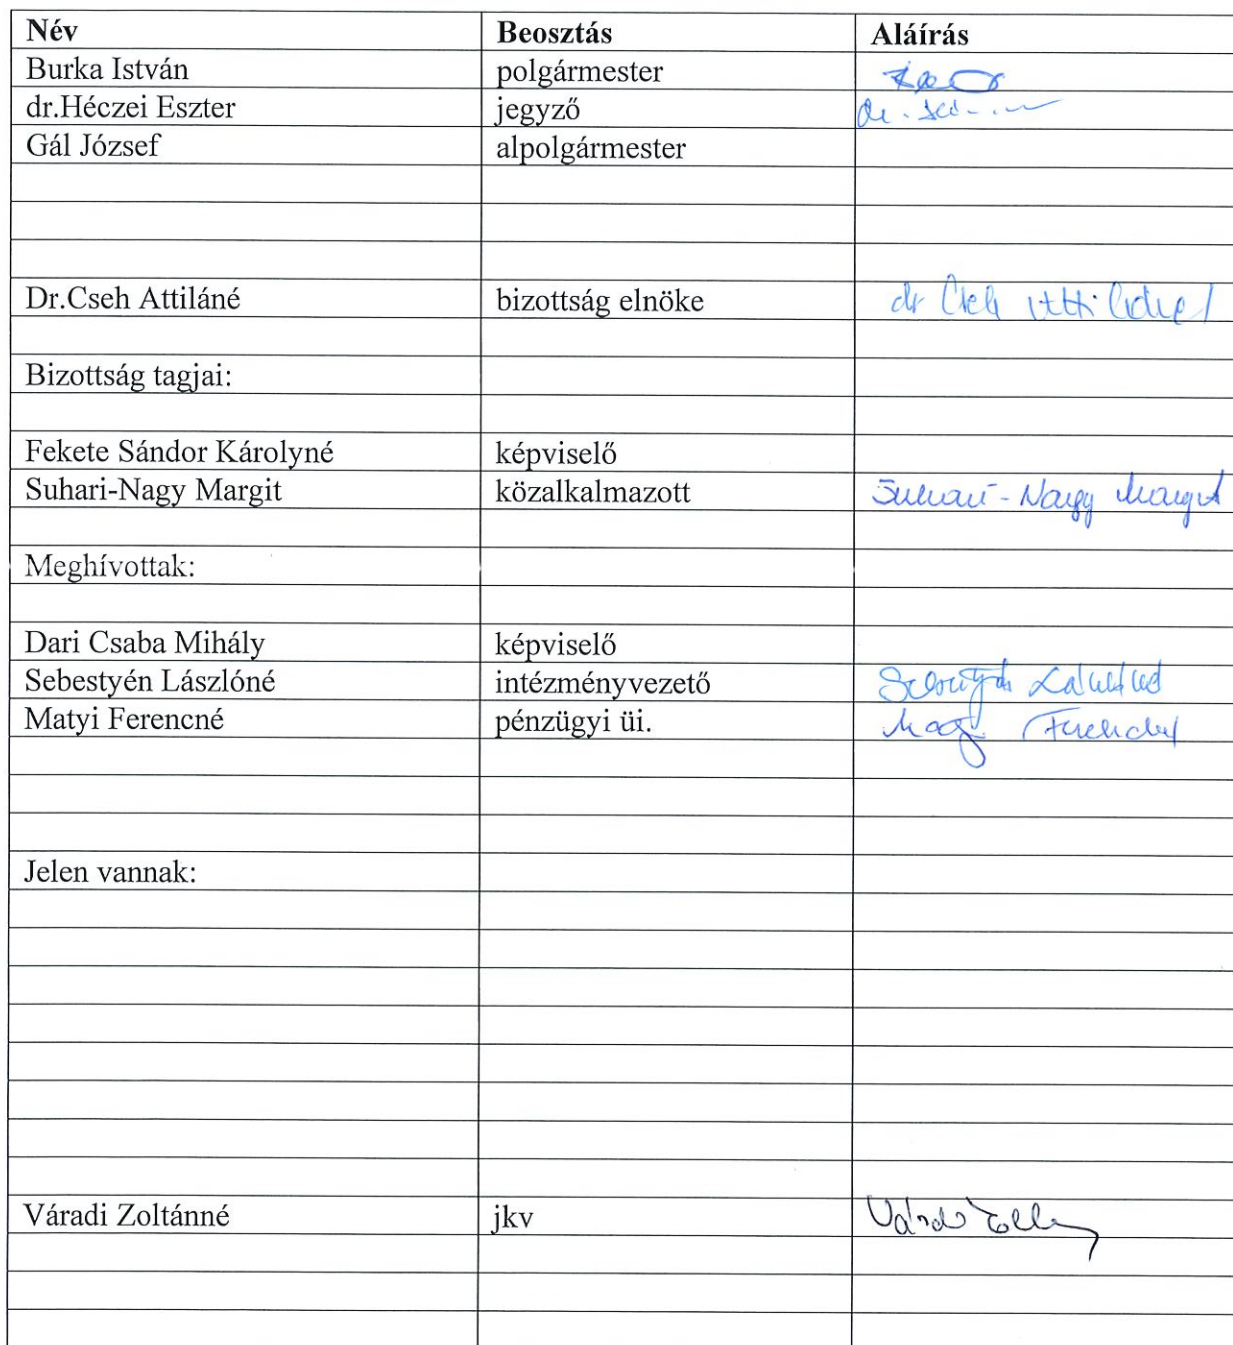 Név Beosztás Aláírás
Burka István polgármester
dr.Héczei Eszter jegyző dr.
Gál József alpolgármester
Dr.Cseh Attiláné bizottság elnöke dr Cseh Attiláné
Bizottság tagjai:
Fekete Sándor Károlyné képviselő
Suhari-Nagy Margit közalkalmazott Suhari-Nagy Margit
Meghívottak:
Dari Csaba Mihály képviselő
Sebestyén Lászlóné intézményvezető Sebestyén Lászlóné
Matyi Ferencné pénzügyi üi. Ferencné
Jelen vannak:
Váradi Zoltánné jkv Váradi